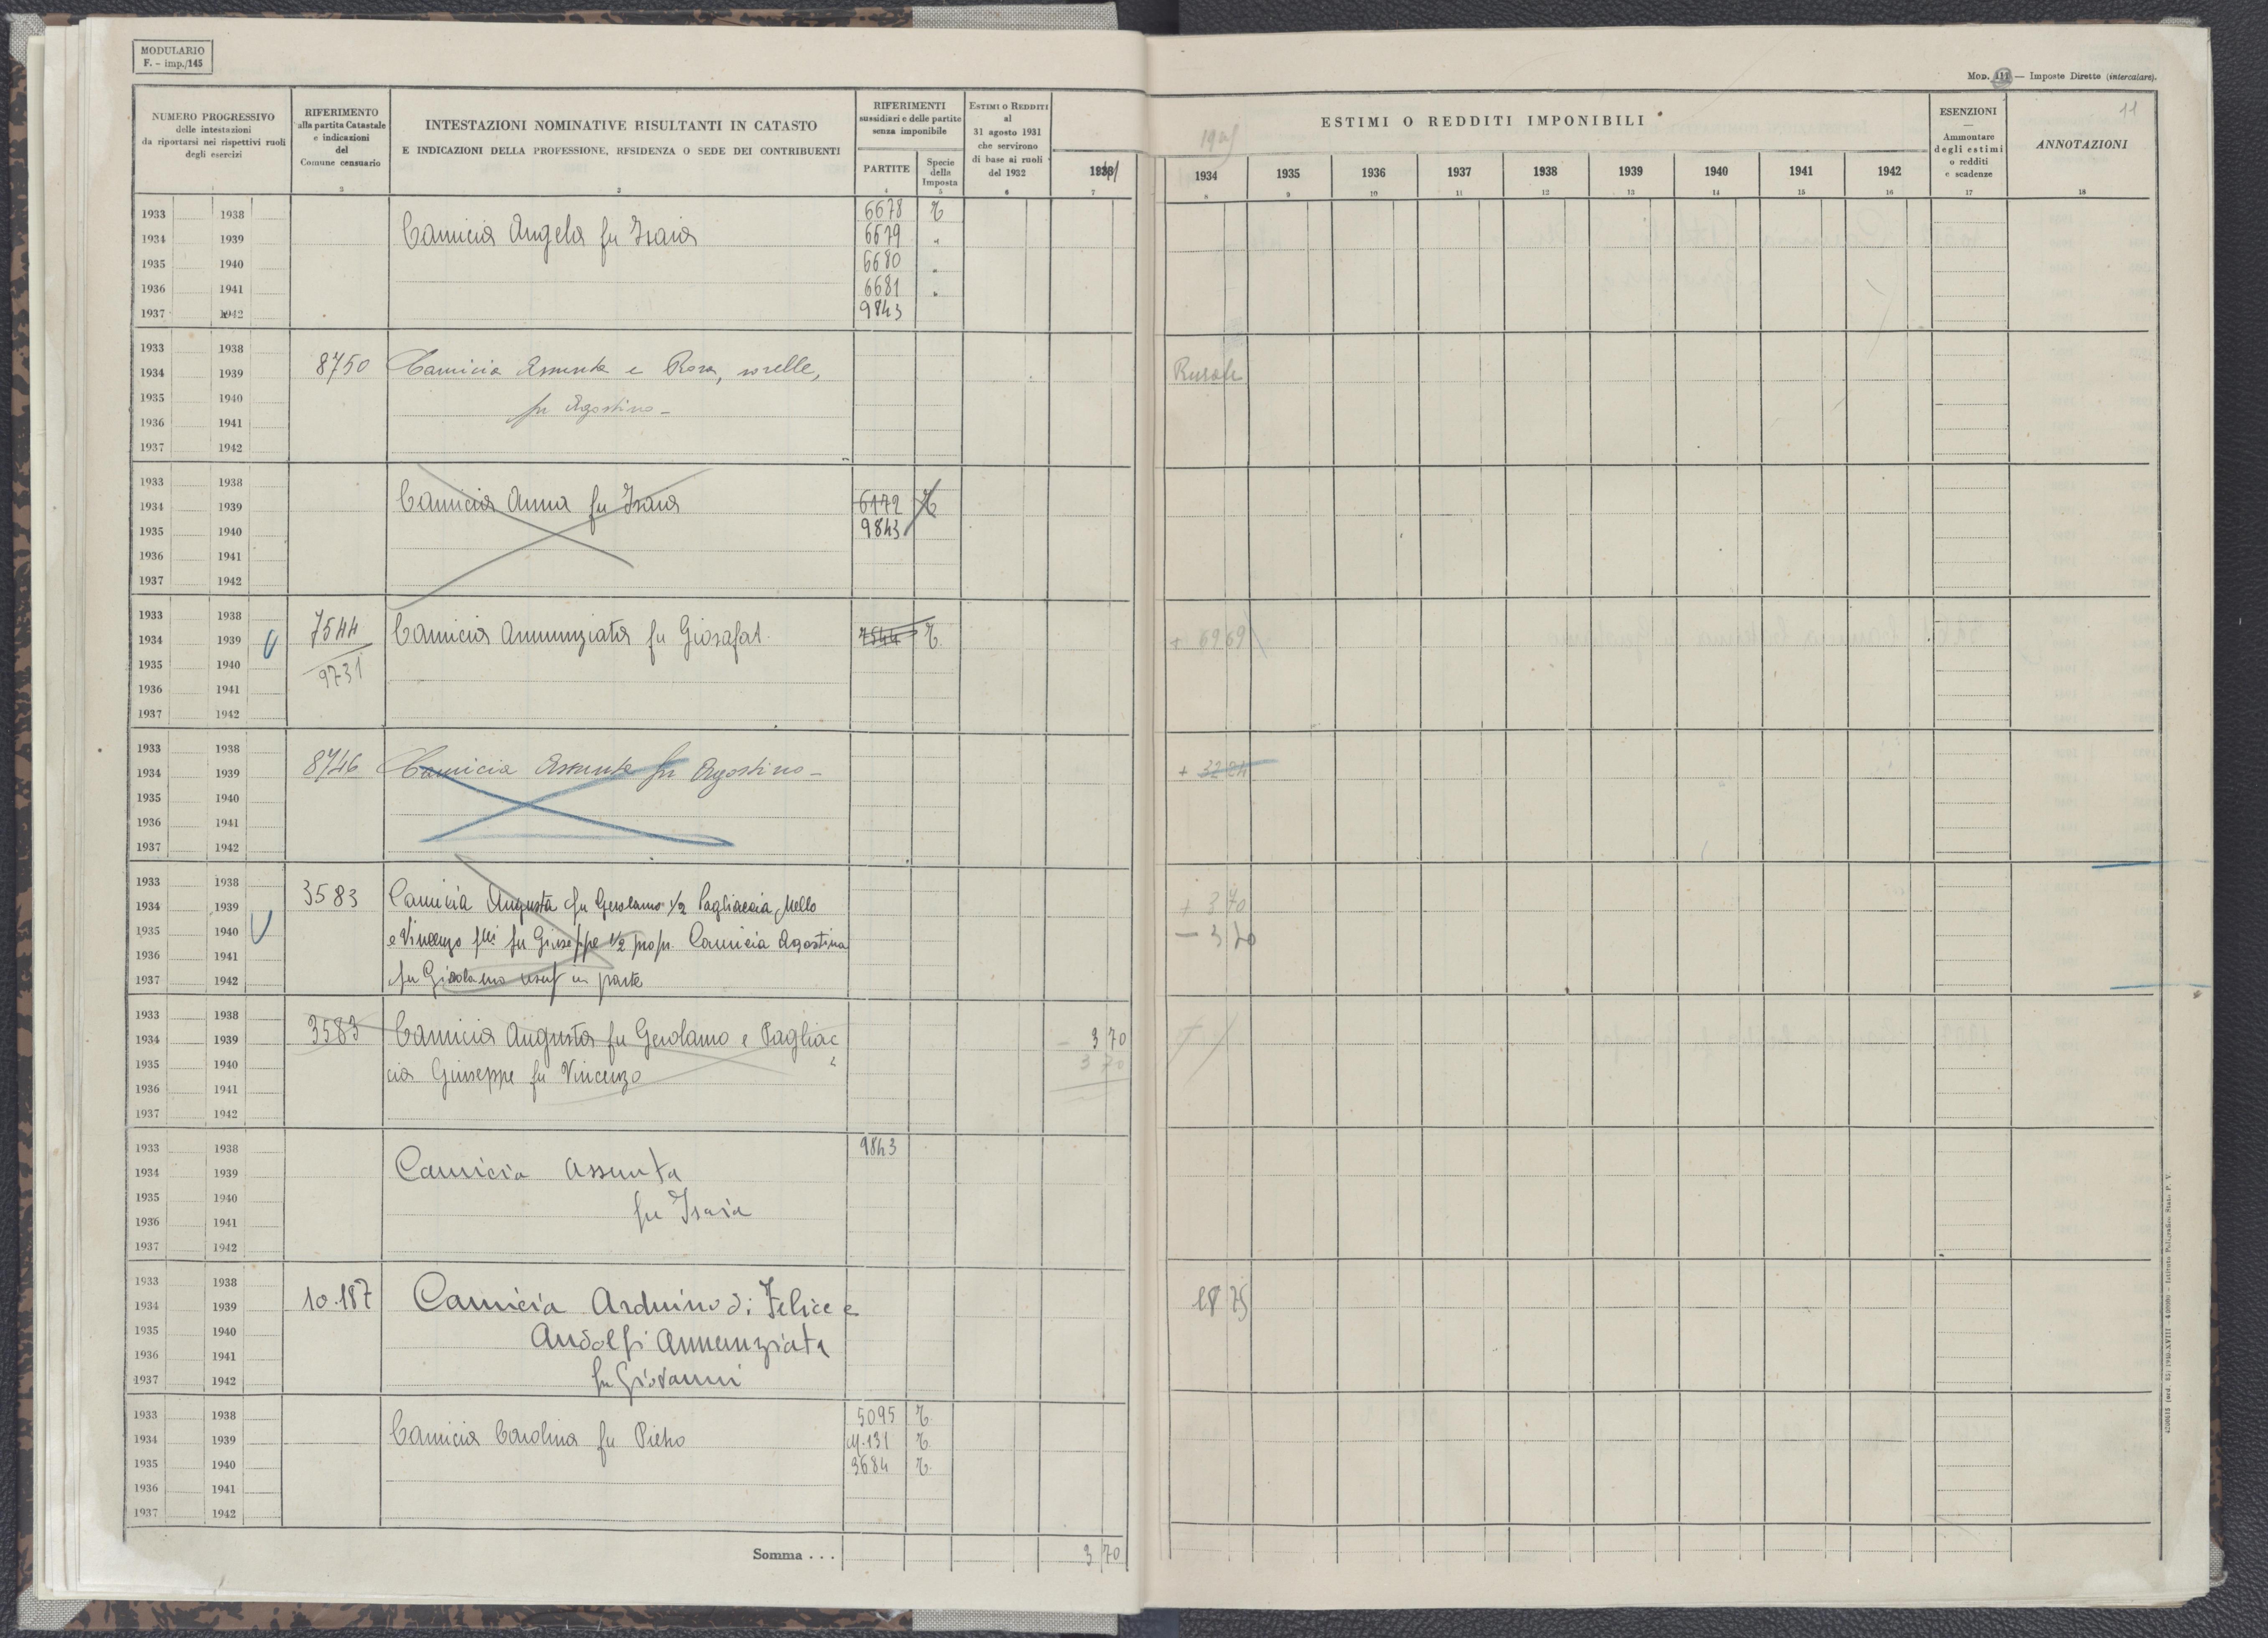 MODULARIO
F. - imp./145
MOD. 111 — Imposte Dirette (intercalare).
11
NUMERO PROGRESSIVO
delle intestazioni
da riportarsi nei rispettivi ruoli
degli esercizi
RIFERIMENTO
alla partita Catastale
e indicazioni
del
Comune censuario
INTESTAZIONI NOMINATIVE RISULTANTI IN CATASTO
E INDICAZIONI DELLA PROFESSIONE, RESIDENZA O SEDE DEI CONTRIBUENTI
RIFERIMENTI
sussidiari e delle partite
senza imponibile
PARTITE
Specie
della
Imposta
ESTIMI O REDDITI
al
31 agosto 1931
che servirono
di base ai ruoli
del 1932
ESTIMI O REDDITI IMPONIBILI
1934 1935 1936 1937 1938 1939 1940 1941 1942
ESENZIONI
Ammontare
degli estimi
o redditi
e scadenze
ANNOTAZIONI
1 3 2 4 5 6 7 8 9 10 11 12 13 14 15 16 17 18
1933 1938 6678 T
1934 1939 Camicia Angela fu Isaia 6679 "
1935 1940 6680 "
1936 1941 6681 "
1937 1942 9843
1933 1938
1934 1939 8750 Camicia Assunta e Rosa, sorelle, Rurale
1935 1940 fu Agostino -
1936 1941
1937 1942
1933 1938
1934 1939 Camicia Anna fu Isaia 6172 T
1935 1940 9843
1936 1941
1937 1942
1933 1938
1934 1939 7544 Camicia Annunziata fu Giosafat. 7544 T. + 69 69
1935 1940 9731
1936 1941
1937 1942
1933 1938
1934 1939 8746 Camicia Assunta fu Agostino - + 32 24
1935 1940
1936 1941
1937 1942
1933 1938
1934 1939 3583 Camicia Augusta fu Gerolamo 1/2 Pagliaccia Nello + 3 70
1935 1940 e Vincenzo flli fu Giuseppe 1/2 propr. Camicia Agostina - 3 70
1936 1941
1937 1942 fu Girolamo usuf in parte
1933 1938
1934 1939 3583 Camicia Augusta fu Gerolamo e Pagliac - 3 70
1935 1940 cia Giuseppe fu Vincenzo 3 70
1936 1941
1937 1942
1933 1938 9843
1934 1939 Camicia Assunta
1935 1940 fu Isaia
1936 1941
1937 1942
1933 1938
1934 1939 10.187 Camicia Arduino di Felice e 18 75
1935 1940 Andolfi Annunziata
1936 1941
1937 1942 fu Giovanni
1933 1938 5095 T.
1934 1939 Camicia Carolina fu Pietro M.131 T.
1935 1940 3684 T.
1936 1941
1937 1942
Somma . . . 3 70